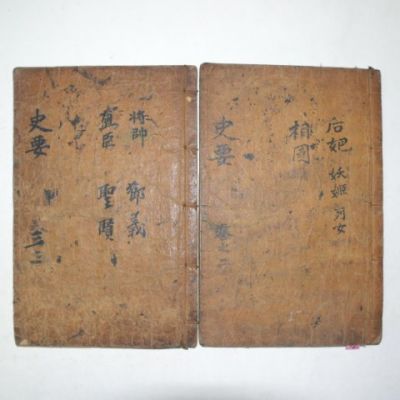 后妃 妖姬 列女
相国
史要
卷之二
將帥 節義
寵臣 聖賢
史要
卷之三